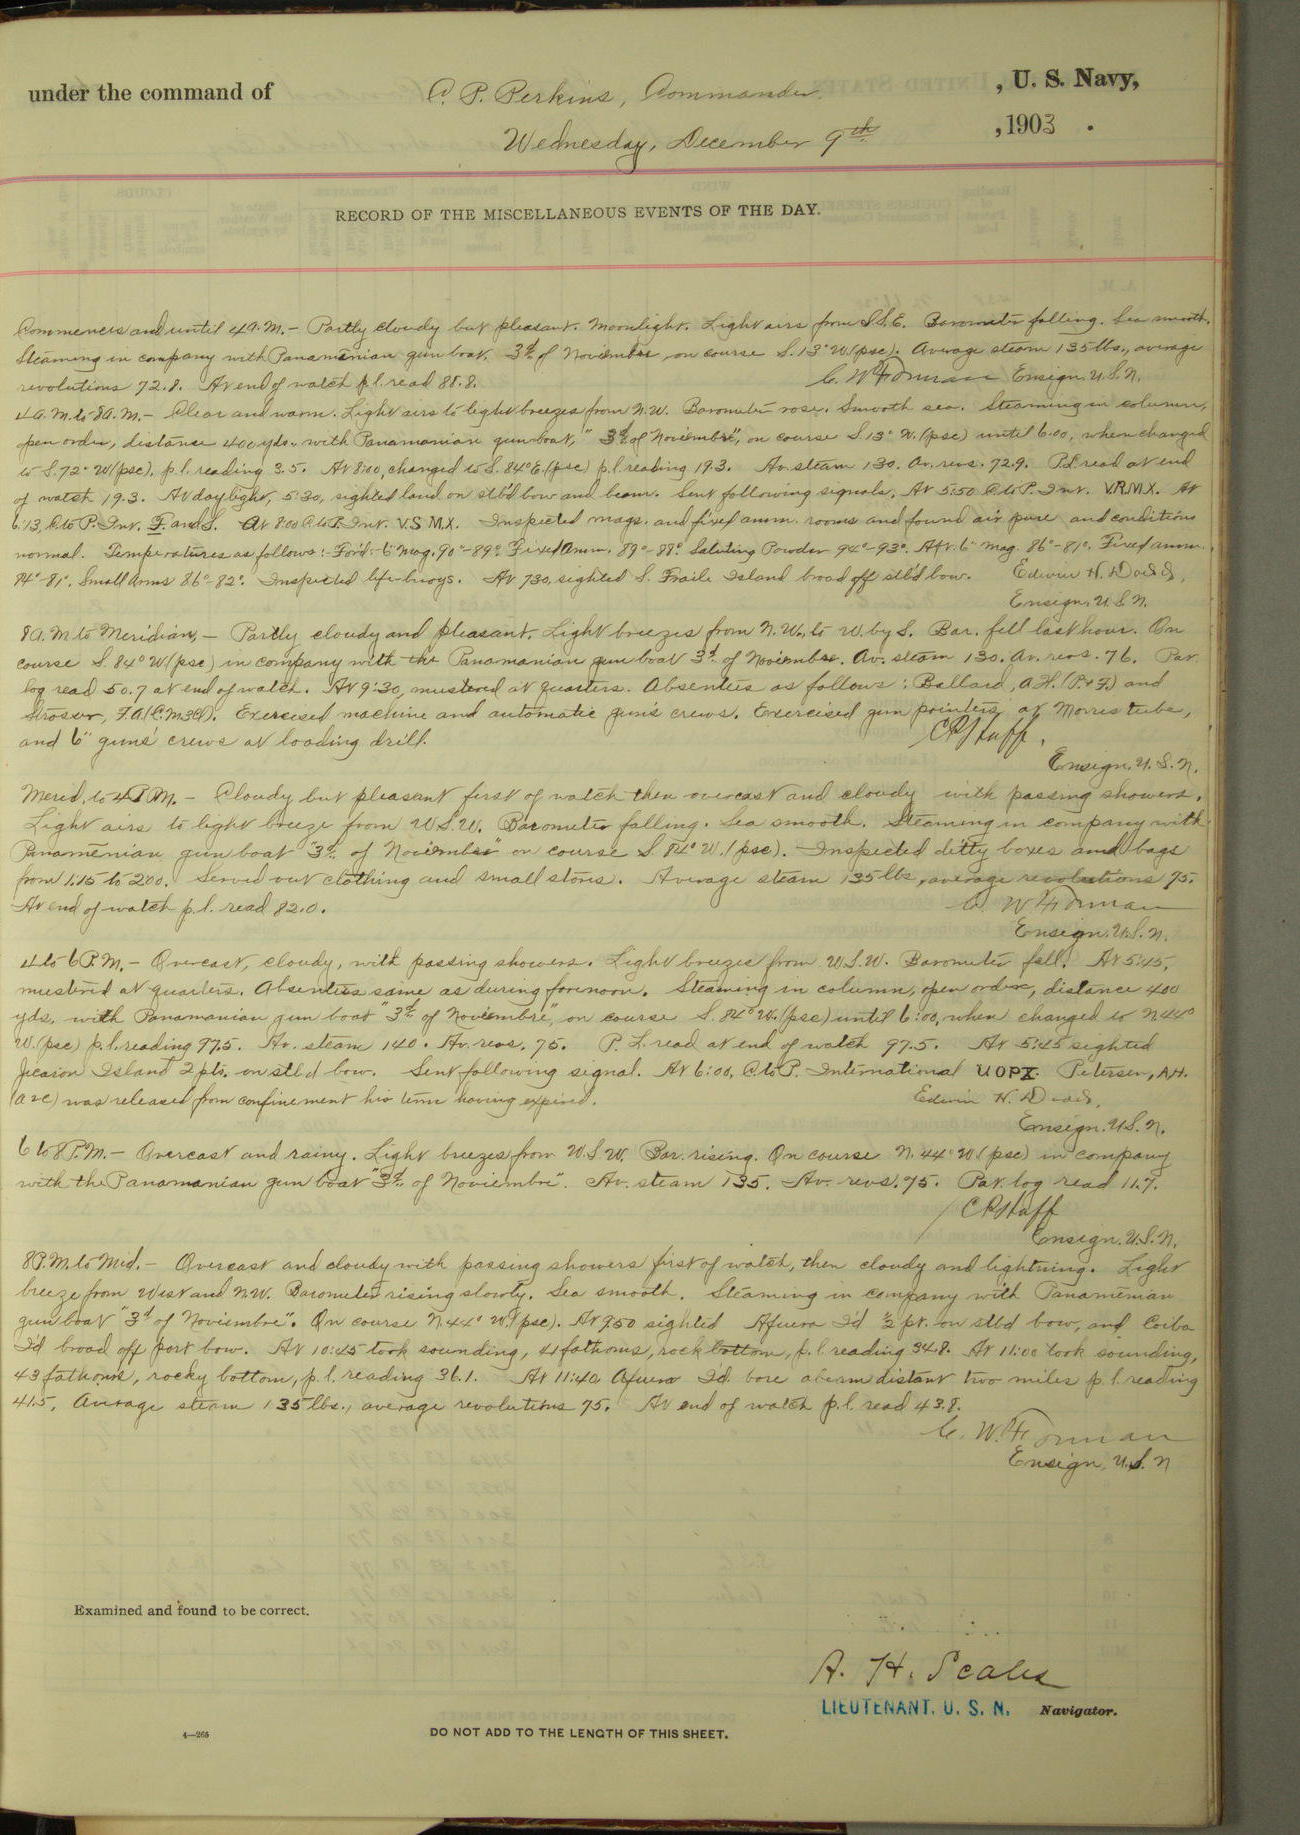 under the command of C. P. Perkins, Commander, , U. S. Navy,
Wednesday, December 9th , 1903 .
RECORD OF THE MISCELLANEOUS EVENTS OF THE DAY.
Commences and until 4 A.M. – Partly cloudy but pleasant. Moonlight. Light airs from S.S.E. Barometer falling. Sea smooth.
Steaming in company with Panamanian gun boat, 3d. of Noviembre, on course S. 13° W. (psc). Average steam 135 lbs., average
revolutions 72.8. At end of watch p.l. read 88.8. C. W. Forman Ensign. U.S.N.
4 A.M. to 8 A.M. – Clear and warm. Light airs to light breezes from N.W. Barometer rose. Smooth sea. Steaming in column,
open order, distance 400 yds., with Panamanian gun boat, "3d. of Noviembre", on course S. 13° W. (psc) until 6:00, when changed
to S. 72° W (psc), p.l. reading 3.5. At 8:00, changed to S. 84° E (psc) p.l. reading 19.3. Av. steam 130. Av. revs. 72.9. P.L. read at end
of watch 19.3. At daylight, 5:30, sighted land on stb'd bow and beam. Sent following signals, At 5:50 C to P. Int. V.R.M.X. At
6:13, C to P. Int. F. and S. At 8:00 C to P. Int. V.S.M.X. Inspected mags. and fixed amm. rooms and found air pure and conditions
normal. Temperatures as follows:– For'd: 6" mag. 90°–89°. Fixed Amm. 89°–88°. Saluting Powder 94°–93°. Aft: 6" mag. 86°–81°. Fixed amm.
84°–81°, Small arms 86°–82°. Inspected life-buoys. At 7:30, sighted S. Fraile Island broad off stb'd bow. Edwin H. Dodd,
Ensign. U.S.N.
8 A.M. to Meridian, – Partly cloudy and pleasant. Light breezes from N.W. to W. by S. Bar. fell last hour. On
course S. 84° W (psc) in company with the Panamanian gun boat 3d. of Noviembre. Av. steam 130. Av. revs. 76. Pat.
log read 50.7 at end of watch. At 9:30, mustered at quarters. Absentees as follows: Ballard, A.H. (P.& F.) and
Strosser, F.A. (C.M. 3 Cl). Exercised machine and automatic gun's crews. Exercised gun pointers at Morris tube,
and 6" guns' crews at loading drill. C P Huff,
Ensign. U.S.N.
Merid. to 4 P.M. – Cloudy but pleasant first of watch then overcast and cloudy with passing showers.
Light airs to light breeze from W.S.W. Barometer falling. Sea smooth. Steaming in company with
Panamenian gun boat "3d. of Noviembre" on course S. 84° W. (psc). Inspected ditty boxes and bags
from 1:15 to 2:00. Served out clothing and small stores. Average steam 135 lbs., average revolutions 75.
At end of watch p.l. read 82.0. C. W. Forman
Ensign. U.S.N.
4 to 6 P.M. – Overcast, cloudy, with passing showers. Light breezes from W.S.W. Barometer fell. At 5:45,
mustered at quarters. Absentees same as during forenoon. Steaming in column, open order, distance 400
yds. with Panamanian gun boat "3d. of Noviembre", on course S. 84° W. (psc) until 6:00, when changed to N. 44°
W. (psc) p.l. reading 97.5. Av. steam 140. Av. revs. 75. P. L. read at end of watch 97.5. At 5:45 sighted
Jicaron Island 2 pts. on stb'd bow. Sent following signal. At 6:00, C to P. International U O P X. Petersen, A.H.
was released from confinement his term having expired. Edwin H. Dodd,
Ensign. U.S.N.
6 to 8 P.M. – Overcast and rainy. Light breezes from W.S.W. Bar. rising. On course N. 44° W. (psc) in company
with the Panamanian gun boat "3d. of Noviembre". Av. steam 135. Av. revs. 75. Pat. log read 11.7.
C P Huff
Ensign. U.S.N.
8 P.M. to Mid. – Overcast and cloudy with passing showers first of watch, then cloudy and lightning. Light
breeze from West and N.W. Barometer rising slowly. Sea smooth. Steaming in company with Panamenian
gun boat "3d of Noviembre". On course N. 44° W. (psc). At 9:50 sighted Afuera I'd ½ pt. on stbd bow, and Coiba
I'd broad off port bow. At 10:45 took sounding, 41 fathoms, rock bottom, p.l. reading 34.8. At 11:00 took sounding,
43 fathoms, rocky bottom, p.l. reading 36.1. At 11:40 Afuera I'd. bore abeam distant two miles p.l. reading
41.5. Average steam 135 lbs., average revolutions 75. At end of watch p.l. read 43.8.
C. W. Forman
Ensign, U.S.N
Examined and found to be correct.
A. H. Scales
LIEUTENANT. U. S. N. Navigator.
4—265 DO NOT ADD TO THE LENGTH OF THIS SHEET.